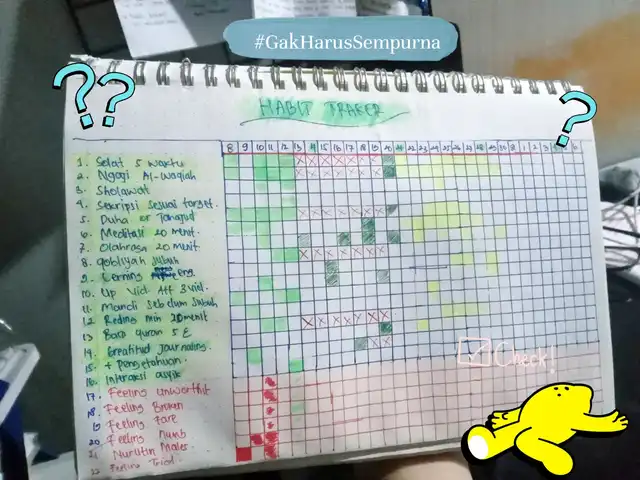 #GakHarusSempurna
??
?
HABIT TRAKER
8 9 10 11 12 13 14 15 16 17 18 19 20 21 22 23 24 25 26 27 28 29 30
1. Solat 5 waktu
2. Ngaji Al-Waqiah
3. Sholawat
4. Skripsi sesuai target.
5. Duha or Tahajud
6. Meditasi 20 menit.
7. Olahraga 20 menit
8. qobliyah subuh
9. Lerning eng.
10. Up Vid. Aff 3 vid.
11. Mandi sebelum subuh
12 Reding min 20 menit
13. Baca Quran 5 E
14. Greatitud Journaling.
15. + Pengetahuan.
16. Interaksi asyik
17. Feeling unworthit
18. Feeling Broken
19. Feeling Fare
20. Feeling numb
21 Nurutin Males
22 Feeling Tried
Check!